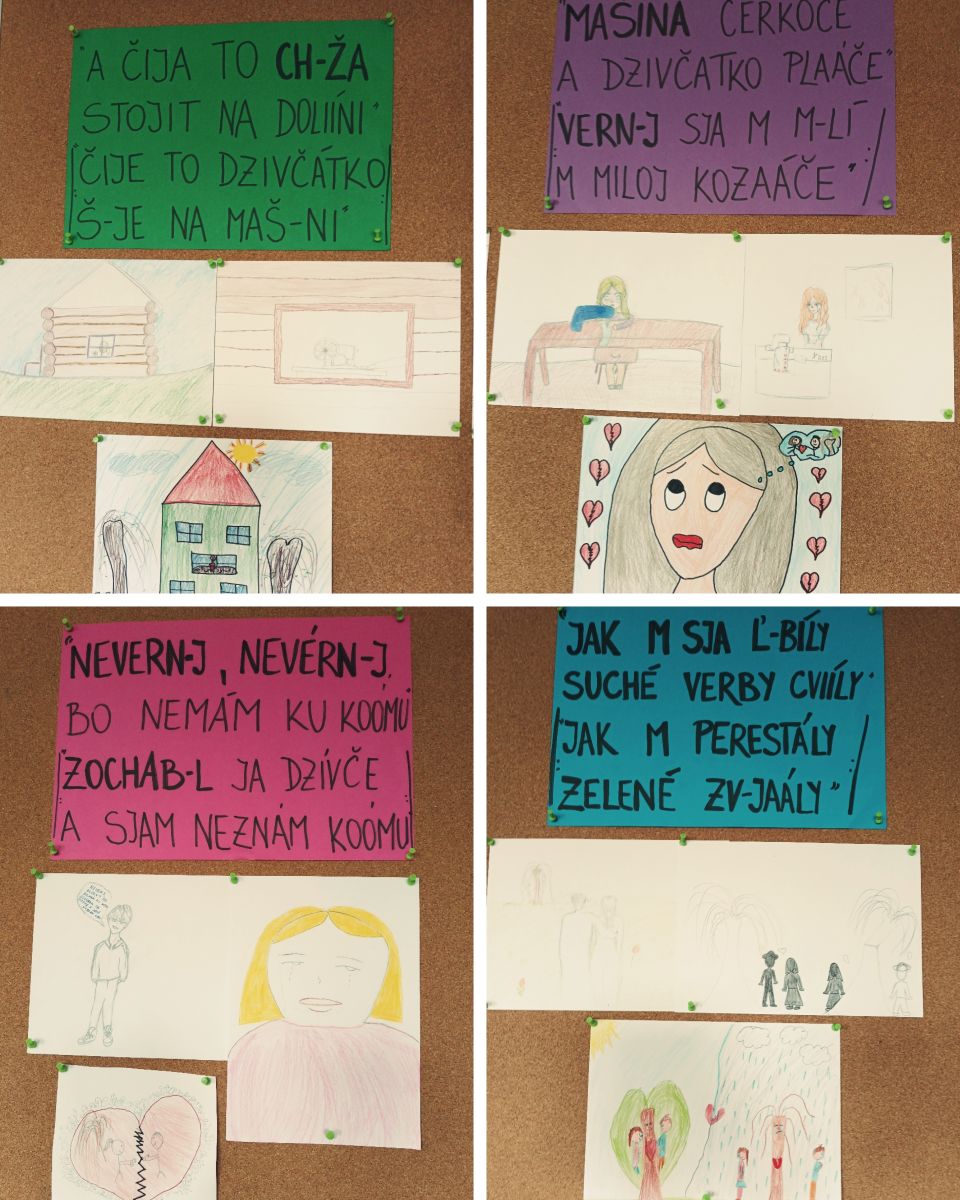 "A ČIJA TO CH-ŽA
STOJIT NA DOLIÍNI"
"ČIJE TO DZIVČÁTKO
Š-JE NA MAŠ-NI"
"MAŠINA ČERKOČE
A DZIVČATKO PLAÁČE"
"VERN-J SJA M M-LÍ
M MILOJ KOZAÁČE"
"NEVERN-J, NEVÉRN-J,
BO NEMÁM KU KOÓMU
"ZOCHAB-L JA DZÍVČE
A SJAM NEZNÁM KOÓMU"
"JAK M SJA Ľ-BÍLY
SUCHÉ VERBY CVIÍLY"
"JAK M PERESTÁLY
ZELENÉ ZV-JAÁLY"